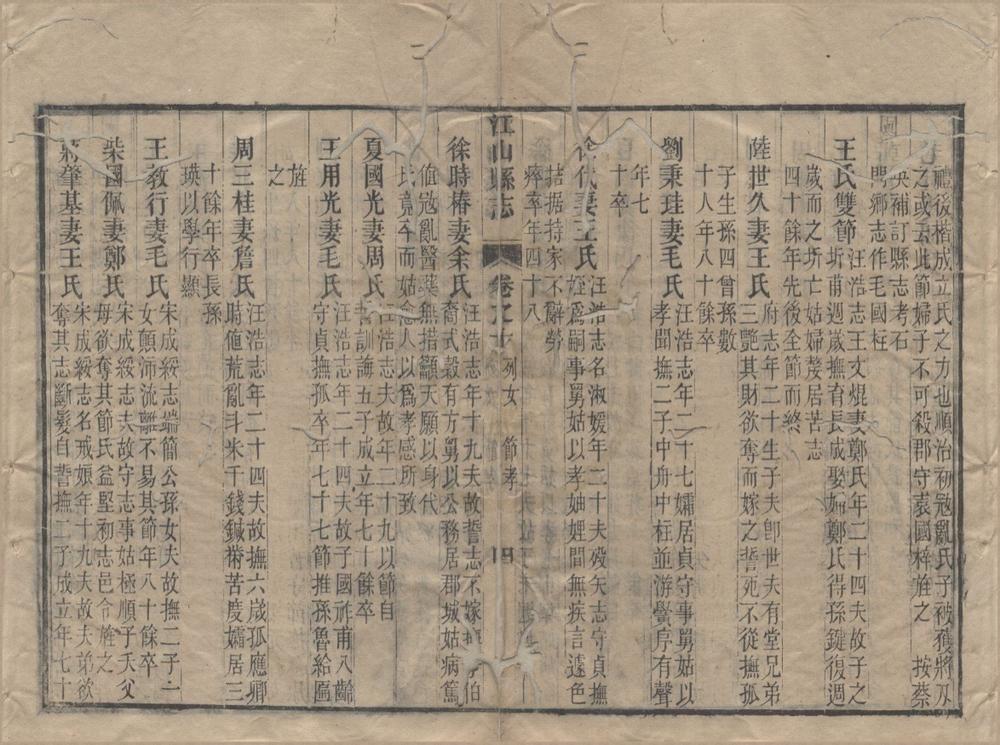 禮後楷成立氏之力也順治初冠亂氏子被獲將刃
之或云此節婦子不可殺郡守袁國梓旌之　按蔡
英補訂縣志考石
門鄉志作毛國枉
王氏雙節汪浩志王文焜妻鄭氏年二十四夫故子之
圻甫週歲撫育長成娶婦鄭氏得孫鍵復週
歲而之圻亡姑婦嫠居苦志
四十餘年先後全節而終
陸世久妻王氏府志年二十生子夫卽世夫有堂兄弟
三艷其財欲奪而嫁之誓死不從撫孤
子生孫四曾孫數
十人年八十餘卒
劉秉珪妻毛氏汪浩志年二十七孀居貞守事舅姑以
孝聞撫二子中舟中柱並游黌序有聲
年七
十卒
徐代妻王氏汪浩志名淑媛年二十夫歿矢志守貞撫
姪爲嗣事舅姑以孝妯娌間無疾言遽色
拮据持家不辭勞
瘁卒年四十八
江山縣志　卷之十　列女　節孝　四
徐時椿妻余氏汪浩志年十九夫故誓志不嫁撫子伯
裔式穀有方舅以公務居郡城姑病篤
值冦亂醫藥無措籲天願以身代
氏竟卒而姑愈人以爲孝感所致
夏國光妻周氏汪浩志夫故年二十九以節自
誓訓誨五子成立年七十餘卒
王用光妻毛氏汪浩志年二十四夫故子國祚甫八齡
守貞撫孤卒年七十七節推孫魯給匾
旌
之
周三桂妻詹氏汪浩志年二十四夫故撫六歲孤應卿
時値荒亂斗米千錢鍼黹苦度孀居三
十餘年卒長孫
瑛以學行顯
王教行妻毛氏宋成綏志端簡公孫女夫故撫二子一
女顛沛流離不易其節年八十餘卒
柴國佩妻鄭氏宋成綏志夫故守志事姑極順子夭父
母欲奪其節氏益堅初志邑令旌之
蔣肇基妻王氏宋成綏志名戒娘年十九夫故夫弟欲
奪其志斷髮自誓撫二子成立年七十